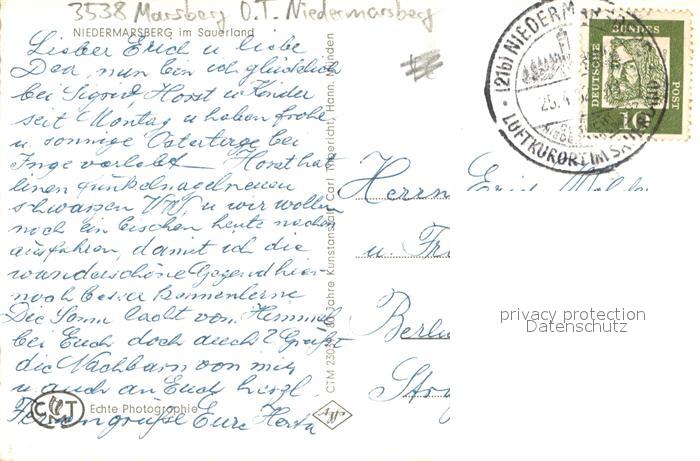 3538 Marsberg O.T. Niedermarsberg
NIEDERMARSBERG im Sauerland
Lieber Erich u liebe
nun bin ich glücklich
bei Sigrid, Horst u Kinder
seit Montag u haben frohe
u. sonnige Ostertage bei
Inge verlebt. Horst hat
einen funkelnagelneuen
schwarzen VW, u wir wollen
noch ein bischen heute nachm
ausfahren, damit ich die
wunderschöne Gegend hier
noch besser kennenlerne
Die Sonne lacht vom Himmel
bei Euch doch auch? Grüßt
die Nachbarn von mir
u. auch an Euch herzl.
Eure Herta
Echte Photographie
CTM 23039 80 Jahre Kunstanstalt Carl Thoericht, Hann. Münden
(21b) NIEDERMARSBERG
LUFTKURORT IM SAUERLAND
DEUTSCHE BUNDESPOST
10
Herrn Erich
u. Fr
Berli
Str
privacy protection
Datenschutz